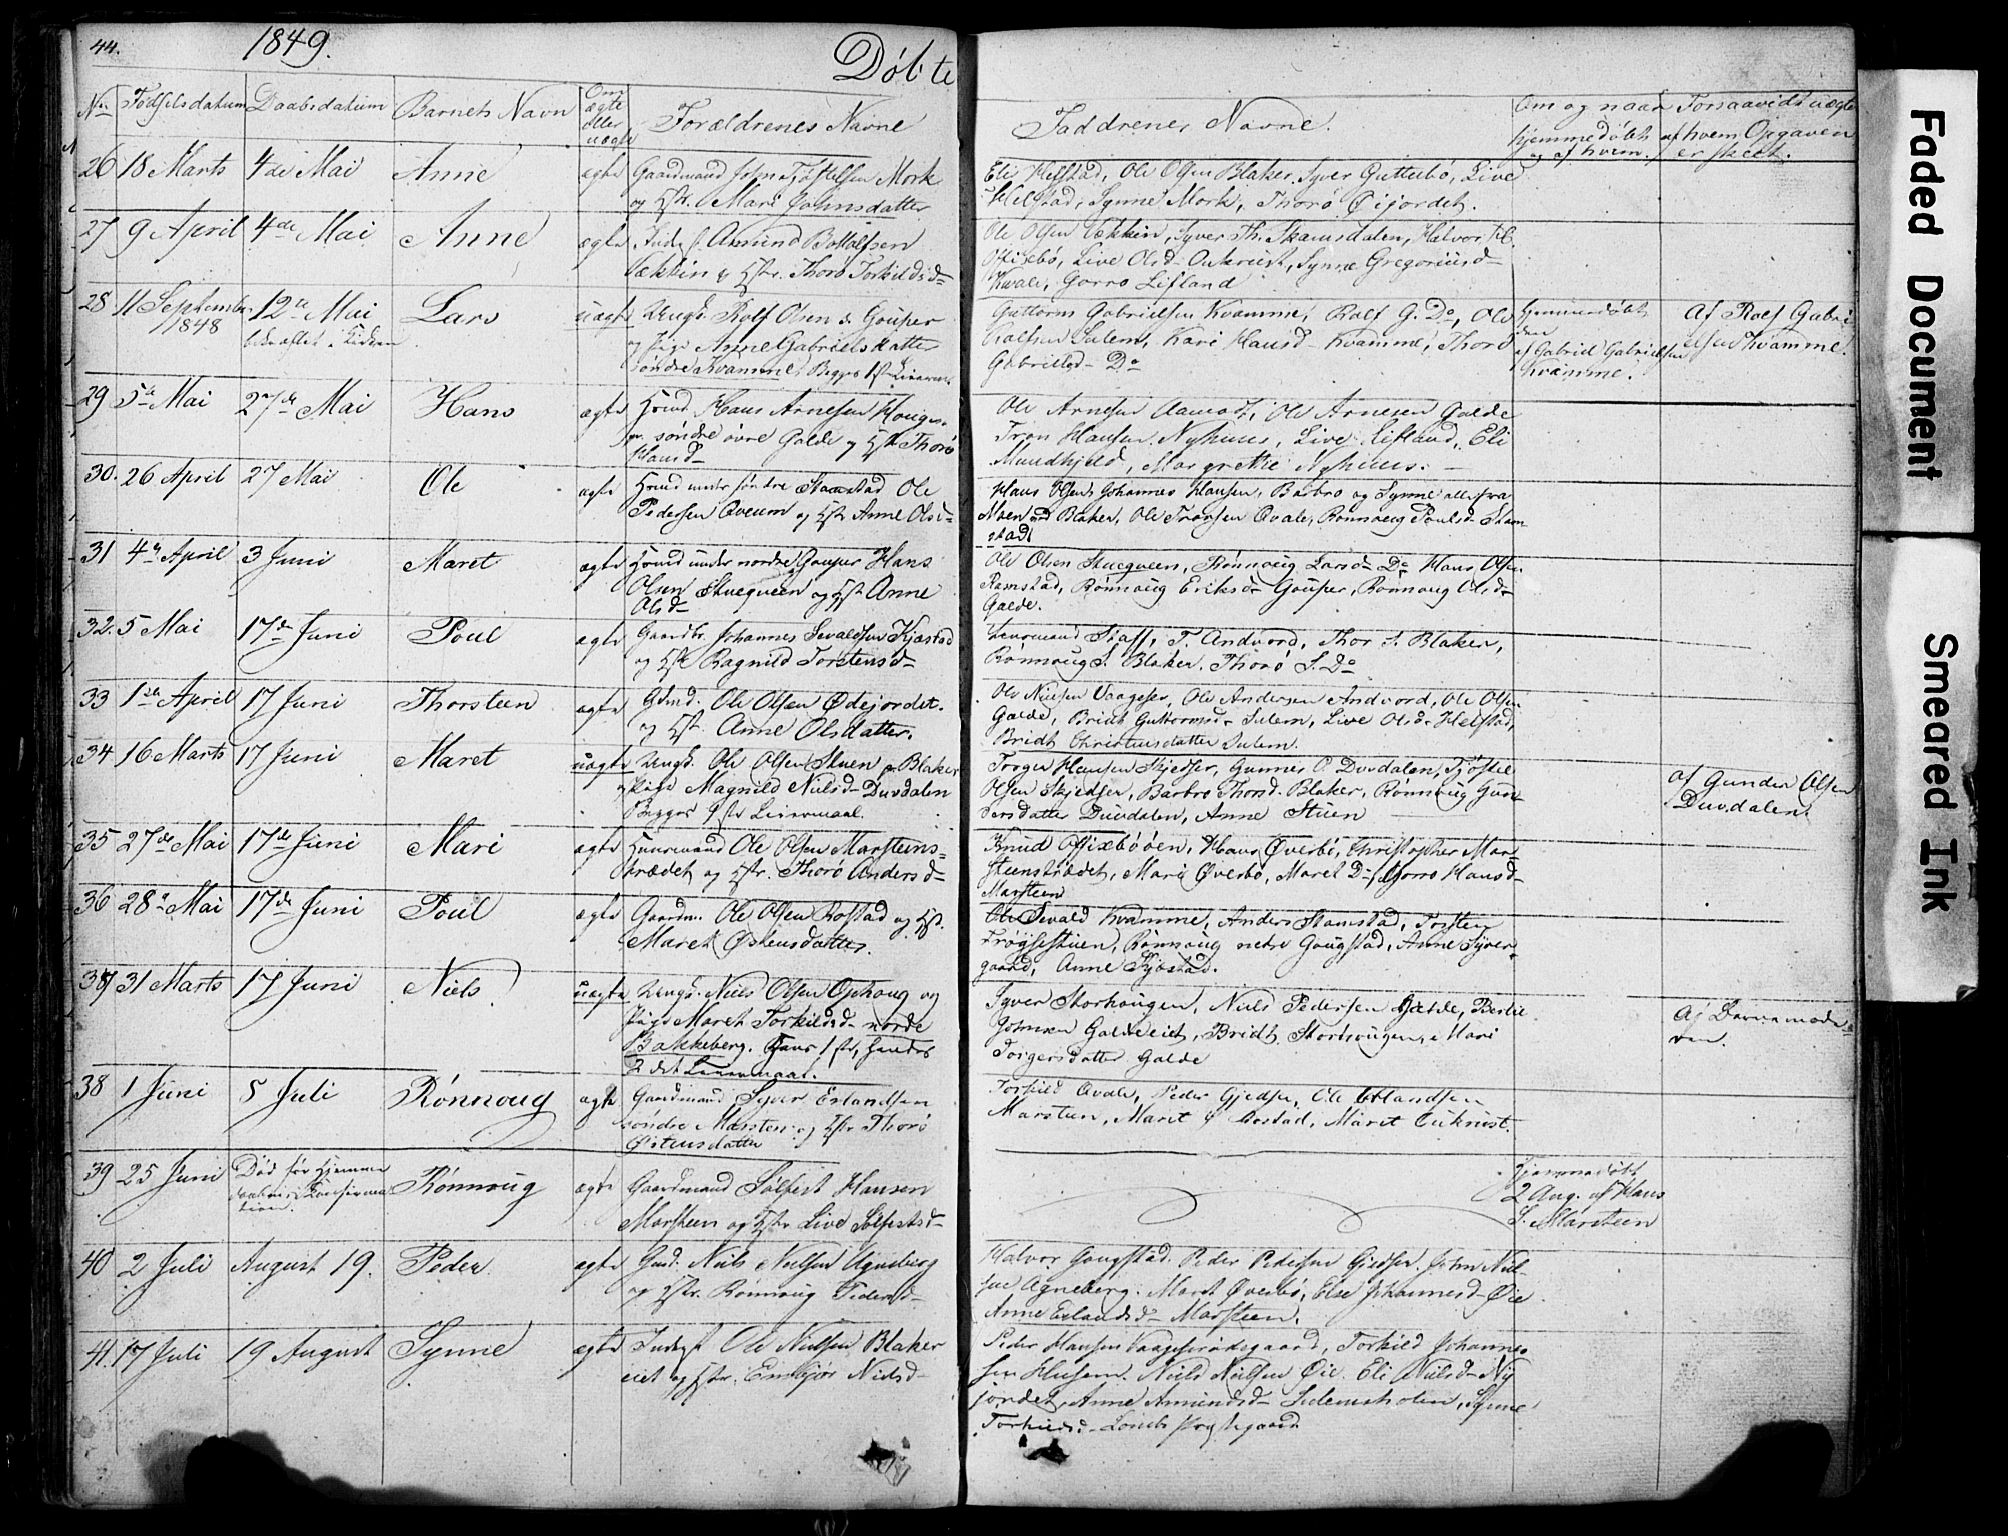 44.
1849.
Døbte
No
Fødselsdatum
Daabsdatum
Barnets Navn
Om ægte eller uægte
Forældrenes Navne
Faddrenes Navne.
Om og naar hjemmedøbt og af hvem.
Forsaavidt uægte af hvem Opgaven er skeet.
26 18 Marts 4de Mai Anne ægte Gaardmand John Mork
og Mari Johnsdatter
Eli Helstad, Ole Olsen Blaker, Syver Gutterbø, Live
Helstad, Synne Mork, Thorø
27 9 April 4de Mai Anne ægte Amund Botholfsen
Vekkin og Thorø Torkildsd
Ole Olsen Vekkin, Syver Th. Skamsdalen, Halvor
Live Olsd Synne Gregoriusd
Kvale, Gorro Lifland
28 11 September 1848 12te Mai Lars uægte Ungk. Rolf Olsen Gouper
bekræftet i Kirken
og Pige Anne Gabrielsdatter
søndre Kvamme, Begges 1ste
Guttorm Gabrielsen Kvamme, Rolf G. Do, Ole
Sulem, Kari Hansd Kvamme, Thorø
Gabrielsd Do
Hjemmedøbt
af Gabriel Gabrielsen
Kvamme.
Af Rolf Gabri
elsen Kvamme.
29 5te Mai 27de Mai Hans ægte Hmd. Hans Arnesen Hougen
søndre øvre Galde og Thorø
Hansd
Ole Arnesen Aamodt, Ole Arnesen Galde
Tron Hansen Nyhuus, Live Lifland, Eli
Mundhjeld, Margrethe Nyhuus.
30. 26 April 27 Mai Ole ægte Hmd under søndre Stamstad Ole
Pedersen Qveum og Anne Olsd
Hans Olsen, Johannes Hansen, Barbro og Synne alle fra
Moen Blaker, Ole Qvale, Rønnoug Poulsd Stam
stad
31 4de April 3 Juni Maret ægte Hmd under nordre Gouper Hans
Olsen Stueqveen og Anne
Olsd
Ole Olsen Stueqveen, Rønnoug Larsd Do Hans Olsen
Ramstad, Rønnoug Eriksd Gouper, Rønnoug Olsd
Galde.
32. 5 Mai 17de Juni Poul ægte Gaardbr. Johannes Sevaldsen Kjæstad
og Ragnild Torstensd
Lensmand Staff, T. Andvord, Thor S. Blaker,
Rønnoug S. Blaker, Thorø S. Do
33 1ste April 17 Juni Thorsteen ægte Ole Olsen Ødejordet.
og Anne Olsdatter.
Ole Nielsen Vaageser, Ole Andersen Andvord, Ole Olsen
Galde, Brit Guttormsd Sulem, Live Olsd Helstad,
Bridt Christensdatter Sulem.
34 16 Marts 17 Juni Maret uægte Ungk. Ole Olsen Stuen Blaker
og Pige Magnild Nielsd Duvdalen
Begges 1ste Leiermaal.
Torger Hansen Skjedser, Gunner O. Duvdalen,
Olsen Skjedser, Barbro Thorsd Blaker, Rønnoug Gun
dersdatter Duvdalen, Anne Stuen
af Gunder Olsen
Duvdalen.
35 27de Mai 17de Juni Mari ægte Huusmand Ole Olsen Marsteins-
trædet og Thorø Andersd
Knud Hans Øverbø, Christopher Mar-
steenstrædet, Mari Øverbø, Maret Do, Gorro Hansd
Marsteen
36 28de Mai 17de Juni Poul ægte Gaardm. Ole Olsen Rostad og
Maret Østensdatter.
Ole Sevald Kvamme, Anders Stamstad, Torsten
Rønnoug nedre Gaugstad, Anne Syver-
gaard, Anne Kjæstad.
37 31 Marts 17 Juni Niels uægte Ungk. Niels Olsen Ophoug og
Pige Maret Torkildsd nordre
Bakkeberg. Hans 1ste, hendes
2det Leiermaal.
Syver Storhougen, Niels Pedersen
Johnsen Galdeeiet, Bridt Storhougen, Mari
Torgersdatter Galde
Af Barnemode
ren.
38 1 Juni 5 Juli Rønnoug ægte Gaardmand Syver Erlandsen
søndre Marsten og Thorø
Østensdatter
Torkild Qvale, Peder Gjedser, Ole Erlandsen
Marsteen, Maret Rostad, Maret Øukrust.
39 25 Juni Død før Hjemme
daabens Konfirma
tion. Rønnoug ægte Gaardmand Sølfest Hansen
Marsteen og Live Sølfestsd
Hjemmedøbt
2 Aug. af Hans
S. Marsteen
40 2 Juli August 19. Peder ægte Niels Nielsen Agneberg
og Rønnoug Pedersd
Halvor Gaugstad. Peder Pedersen Gjedser. John Niel
sen Agneberg. Maret Øverbø, Else Johannesd Øie
Anne Erlandsd Marsteen.
41. 17 Juli 19 August Synne ægte Ole Nielsen Blaker
eiet og Embjør Nielsd
Peder Hansen Torkild Johannes
sen Husem. Niels Nielsen Øie. Eli Nielsd Ny
jordet, Anne Amundsd Sulemsholen, Synne
Torkildsd Lombs Præstegaard
Faded Document
Smeared Ink